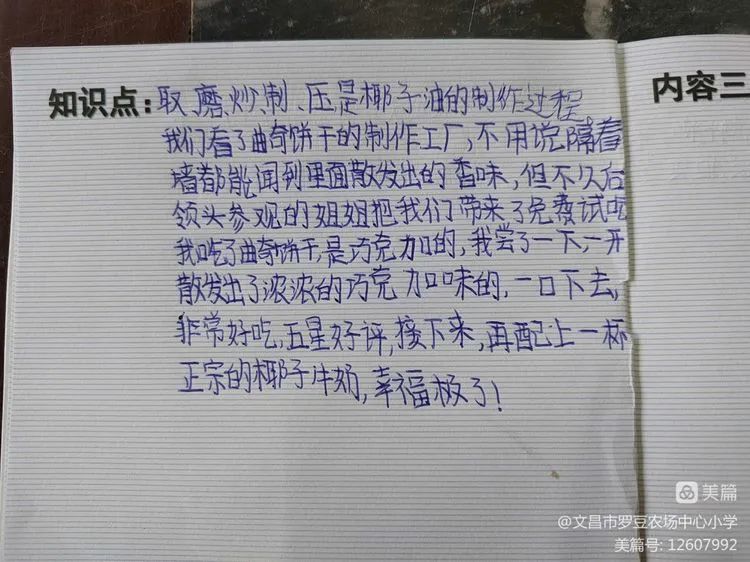 知识点：取、磨、炒、制、压是椰子油的制作过程
我们看了曲奇饼干的制作工厂，不用说隔着
墙都能闻到里面散发出的香味，但不久后
领头参观的姐姐把我们带来了免费试吃
我吃了曲奇饼干，是巧克加的，我尝了一下，一开
散发出了浓浓的巧克加味的，一口下去，
非常好吃，五星好评，接下来，再配上一杯
正宗的椰子牛奶，幸福极了！
内容三
美篇
@文昌市罗豆农场中心小学
美篇号: 12607992